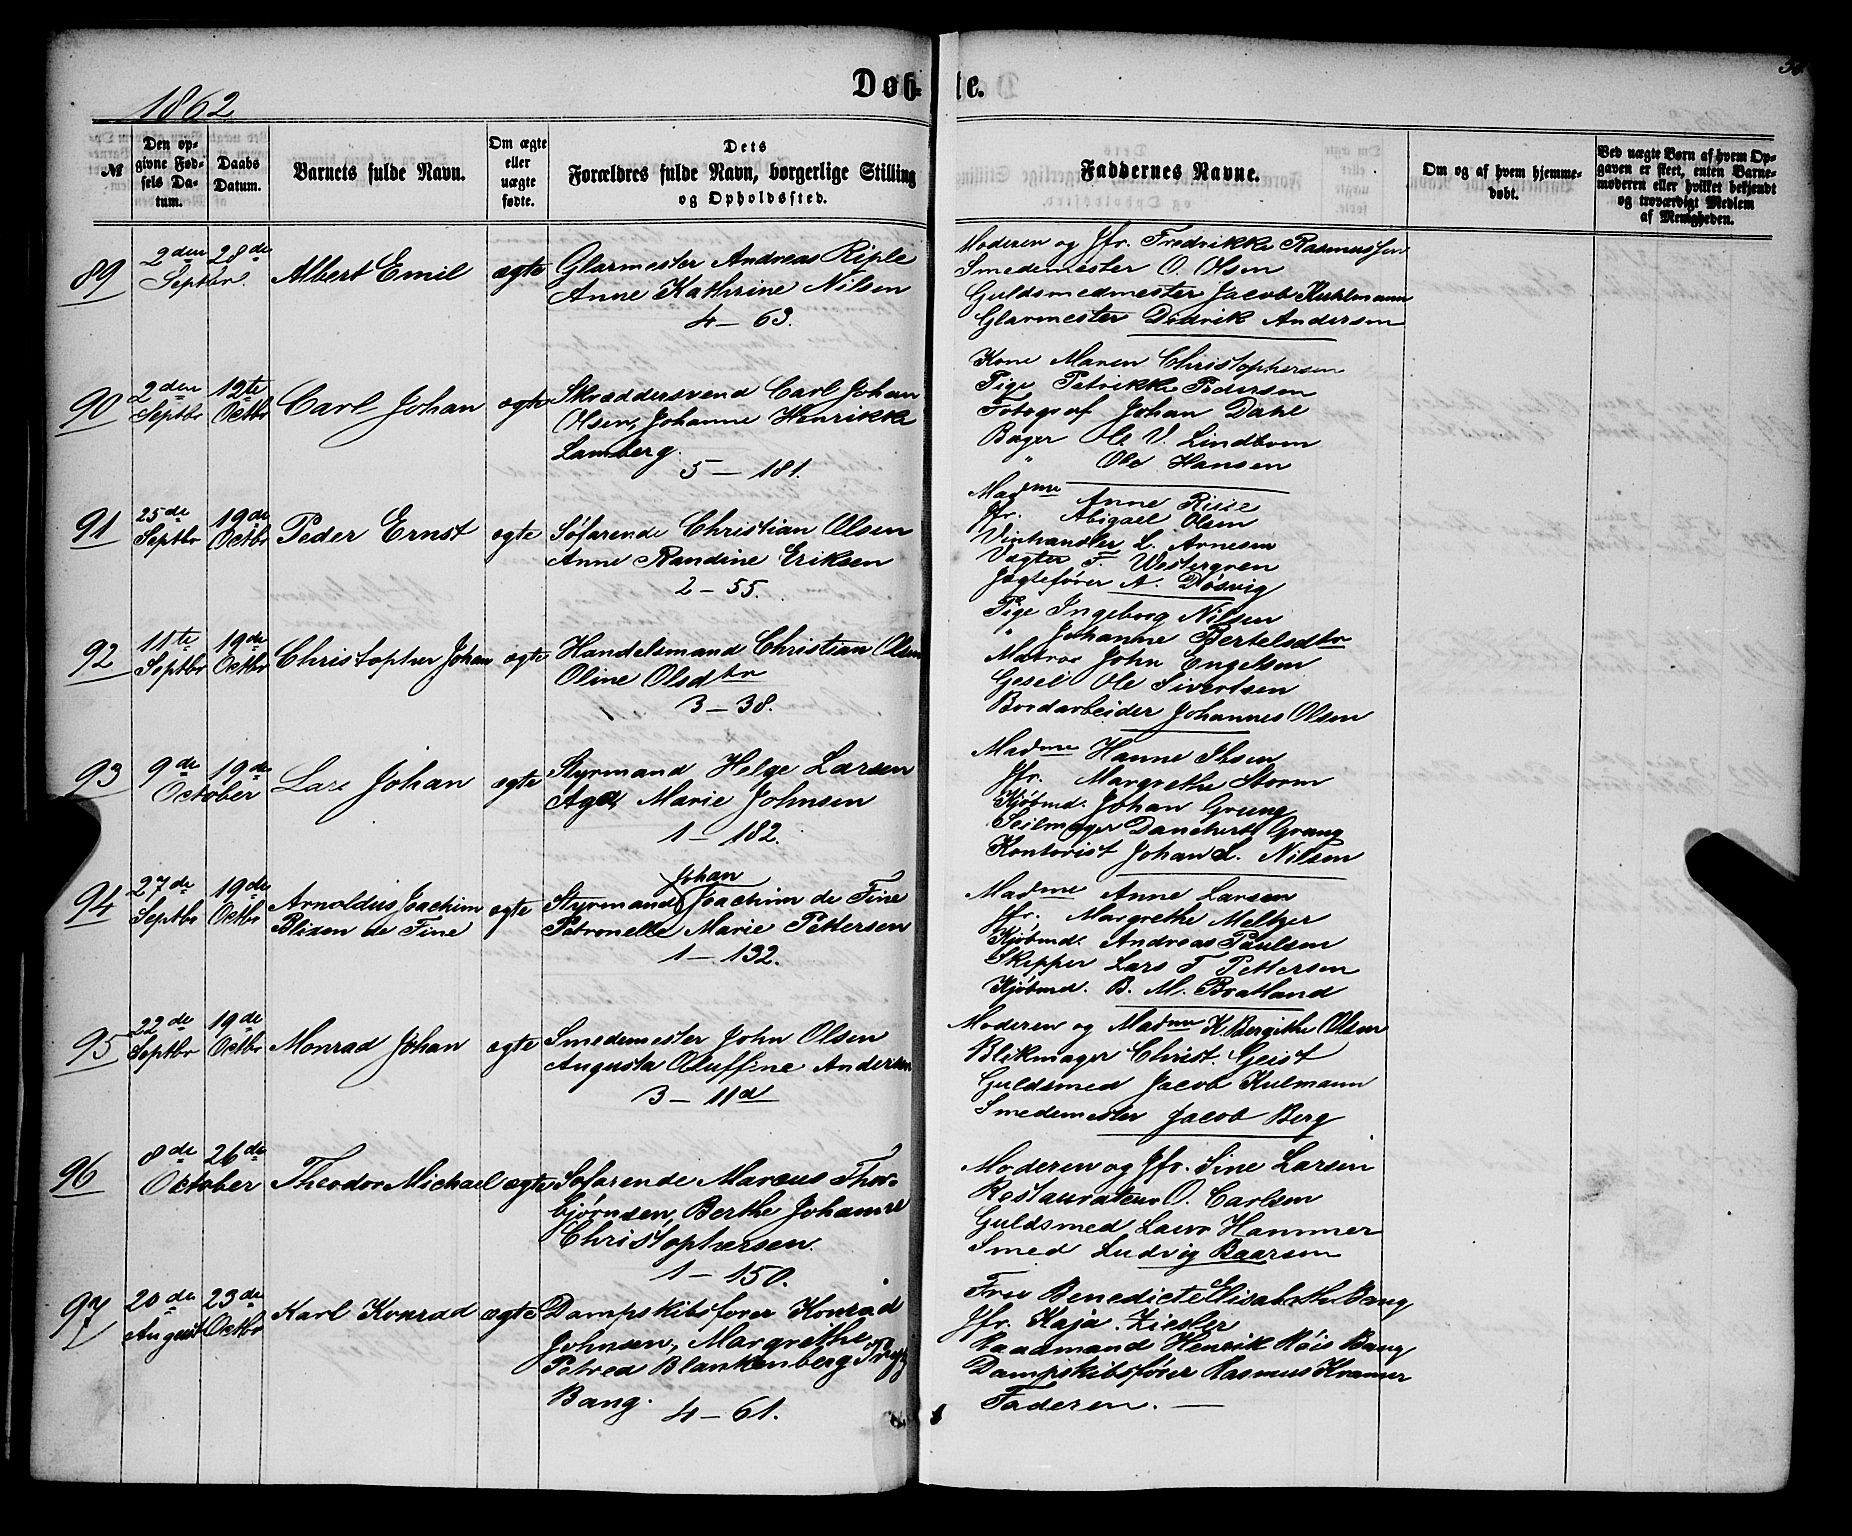 1862
Døbte.
58
№
Den op-
givne Fød-
sels Da-
tum.
Daabs
Datum.
Barnets fulde Navn.
Om ægte
eller
uægte
fødte.
Dets
Forældres fulde Navn, borgerlige Stilling
og Opholdssted.
Faddernes Navne.
Om og af hvem hjemme-
døbt.
Ved uægte Børn af hvem Op-
gaven er skeet, enten Barne-
moderen eller hvilket bekjendt
og troværdigt Medlem
af Menigheden.
89
2den Septbr.
28de
Albert Emil
ægte
Glarmester Andreas Riple
Anne Kathrine Nilsen
4 – 63.
Moderen og Jfr. Fredrikke Rasmussen
Smedemester O. Olsen
Guldsmedmester Jacob Kuhlmann
Glarmester Didrik Andersen
90
2den
Septbr
12te
Octbr
Carl Johan
ægte
Skræddersvend Carl Johan
Olsen, Johanne Henrikke
Lamberg.
5 – 181.
Kone Maren Christophersen
Pige Petrikke Pedersen
Fotograf Johan Dahl
Bager Ole V. Lindbom
" Ole Hansen
91
25de
Septbr
19de
Octbr
Peder Ernst
ægte
Søfarende Christian Olsen
Anne Randine Eriksen
2 – 55.
Madme Anne Riise
Jfr. Abigael Olsen
Vinhandler L. Arnesen
Vægter F. Westergren
Jægtefører A. Døsvig
92
11te
Septbr
19de
Octbr
Christopher Johan
ægte
Handelsmand Christian Olsen
Oline Olsdtr
3 – 38.
Pige Ingeborg Nilsen
" Johanne Bertelsdtr
Matros John Engelsen
Gesel Ole Sivertsen
Bordarbeider Johannes Olsen
93
9de
19de
October
Lars Johan
ægte
Styrmand Helge Larsen
Aga Marie Johnsen
1 – 182.
Madme Hanne Ibsen
Jfr. Margrethe Storm
Kjøbmd. Johan Grung
Seilmager Danckert Grung
Kontorist Johan L. Nilsen
94
27de
Septbr
19de
Octbr
Arnoldus Joachim
Blixen de Fine
ægte
Johan
Styrmand Joachim de Fine
Petronelle Marie Pettersen
1 – 132.
Madme Anne Larsen
Jfr. Margrethe Meltzer
Kjøbmd. Andreas Paulsen
Skipper Lars T Pettersen
Kjøbmd. B. M. Bratland
95
22de
Septbr
19de
Octbr
Monrad Johan
ægte
Smedemester John Olsen
Augusta Oluffine Andersen
3 – 11d
Moderen og Madme K. Bergithe Olsen
Blikmager Christ. Geist
Guldsmed Jacob Kulmann
Smedemester Jacob Berg
96
8de
26de
October
Theodor Michael
ægte
Søfarende Marcus Thor-
bjørnsen, Berthe Johanne
Christophersen.
1 – 150.
Moderen og Jfr. Sine Larsen
Restaurateur O. Carlsen
Guldsmed Laur Hammer
Smed Ludvig Baarsen
97
20de
August
23de
Octbr
Karl Konrad
ægte
Dampskibsfører Konrad
Johnsen, Margrethe
Petrea Blankenberg
Bang.
4 – 61.
Fru Benedicte Elisabeth Bang
Jfr. Kaja Ziesler
Raadmand Henrik Bang
Dampskibsfører Rasmus Kramer
Faderen. —